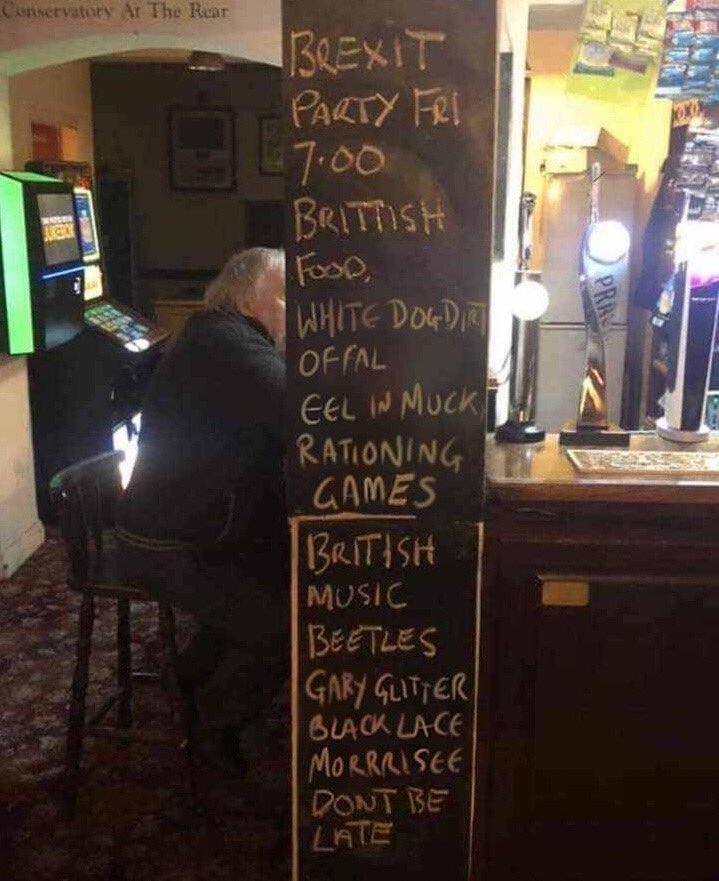 Conservatory At The Rear
BREXIT
PARTY FRI
7.00
BRITTISH
FOOD,
WHITE DOG DIRT
OFFAL
EEL IN MUCK
RATIONING
GAMES
BRITISH
MUSIC
BEETLES
GARY GLITTER
BLACK LACE
MORRRISEE
DONT BE
LATE
JUKEBOX